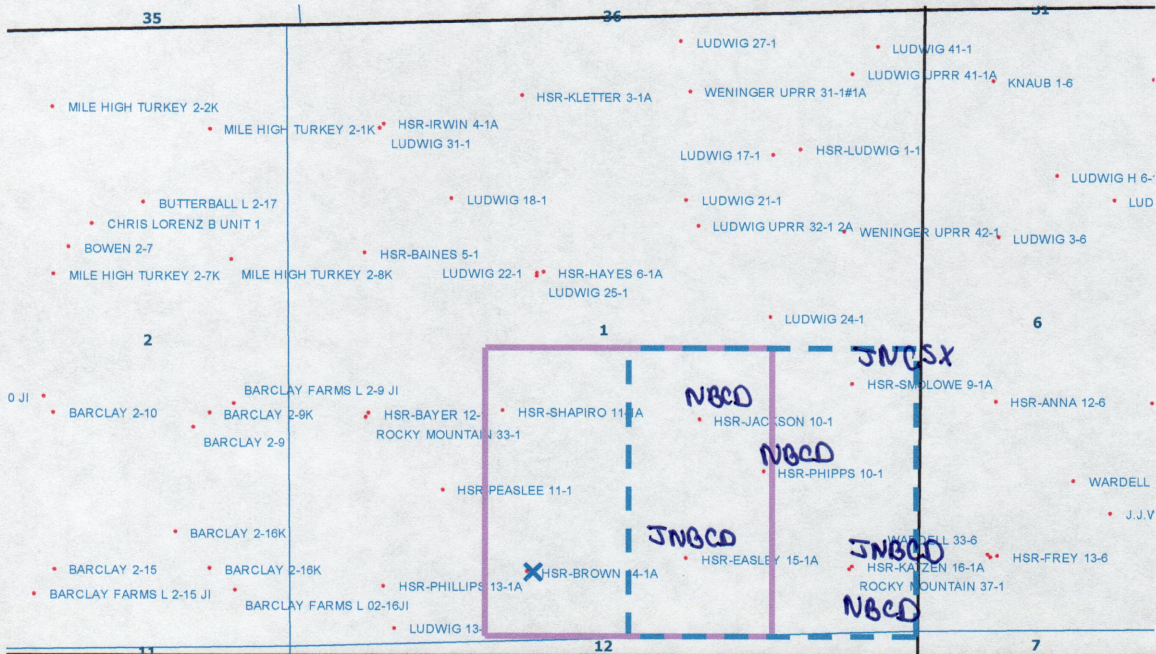 35
36
31
LUDWIG 27-1
LUDWIG 41-1
LUDWIG UPRR 41-1A
KNAUB 1-6
MILE HIGH TURKEY 2-2K
HSR-KLETTER 3-1A
WENINGER UPRR 31-1#1A
MILE HIGH TURKEY 2-1K
HSR-IRWIN 4-1A
LUDWIG 31-1
LUDWIG 17-1
HSR-LUDWIG 1-1
LUDWIG H 6-
BUTTERBALL L 2-17
LUDWIG 18-1
LUDWIG 21-1
LUD
CHRIS LORENZ B UNIT 1
LUDWIG UPRR 32-1 2A
WENINGER UPRR 42-1
LUDWIG 3-6
BOWEN 2-7
HSR-BAINES 5-1
MILE HIGH TURKEY 2-7K
MILE HIGH TURKEY 2-8K
LUDWIG 22-1
HSR-HAYES 6-1A
LUDWIG 25-1
LUDWIG 24-1
2
1
6
JNCSX
HSR-SMOLOWE 9-1A
0 JI
BARCLAY FARMS L 2-9 JI
NBCD
BARCLAY 2-10
BARCLAY 2-9K
HSR-BAYER 12-
HSR-SHAPIRO 11-1A
HSR-JACKSON 10-1
HSR-ANNA 12-6
BARCLAY 2-9
ROCKY MOUNTAIN 33-1
NBCD
HSR-PHIPPS 10-1
HSR-PEASLEE 11-1
WARDELL
J.J.V
BARCLAY 2-16K
JNBCD
WARDELL 33-6
JNBCD
BARCLAY 2-15
BARCLAY 2-16K
HSR-BROWN 14-1A
HSR-EASLEY 15-1A
HSR-KATZEN 16-1A
HSR-FREY 13-6
BARCLAY FARMS L 2-15 JI
HSR-PHILLIPS 13-1A
ROCKY MOUNTAIN 37-1
BARCLAY FARMS L 02-16JI
NBCD
LUDWIG 13-
11
12
7